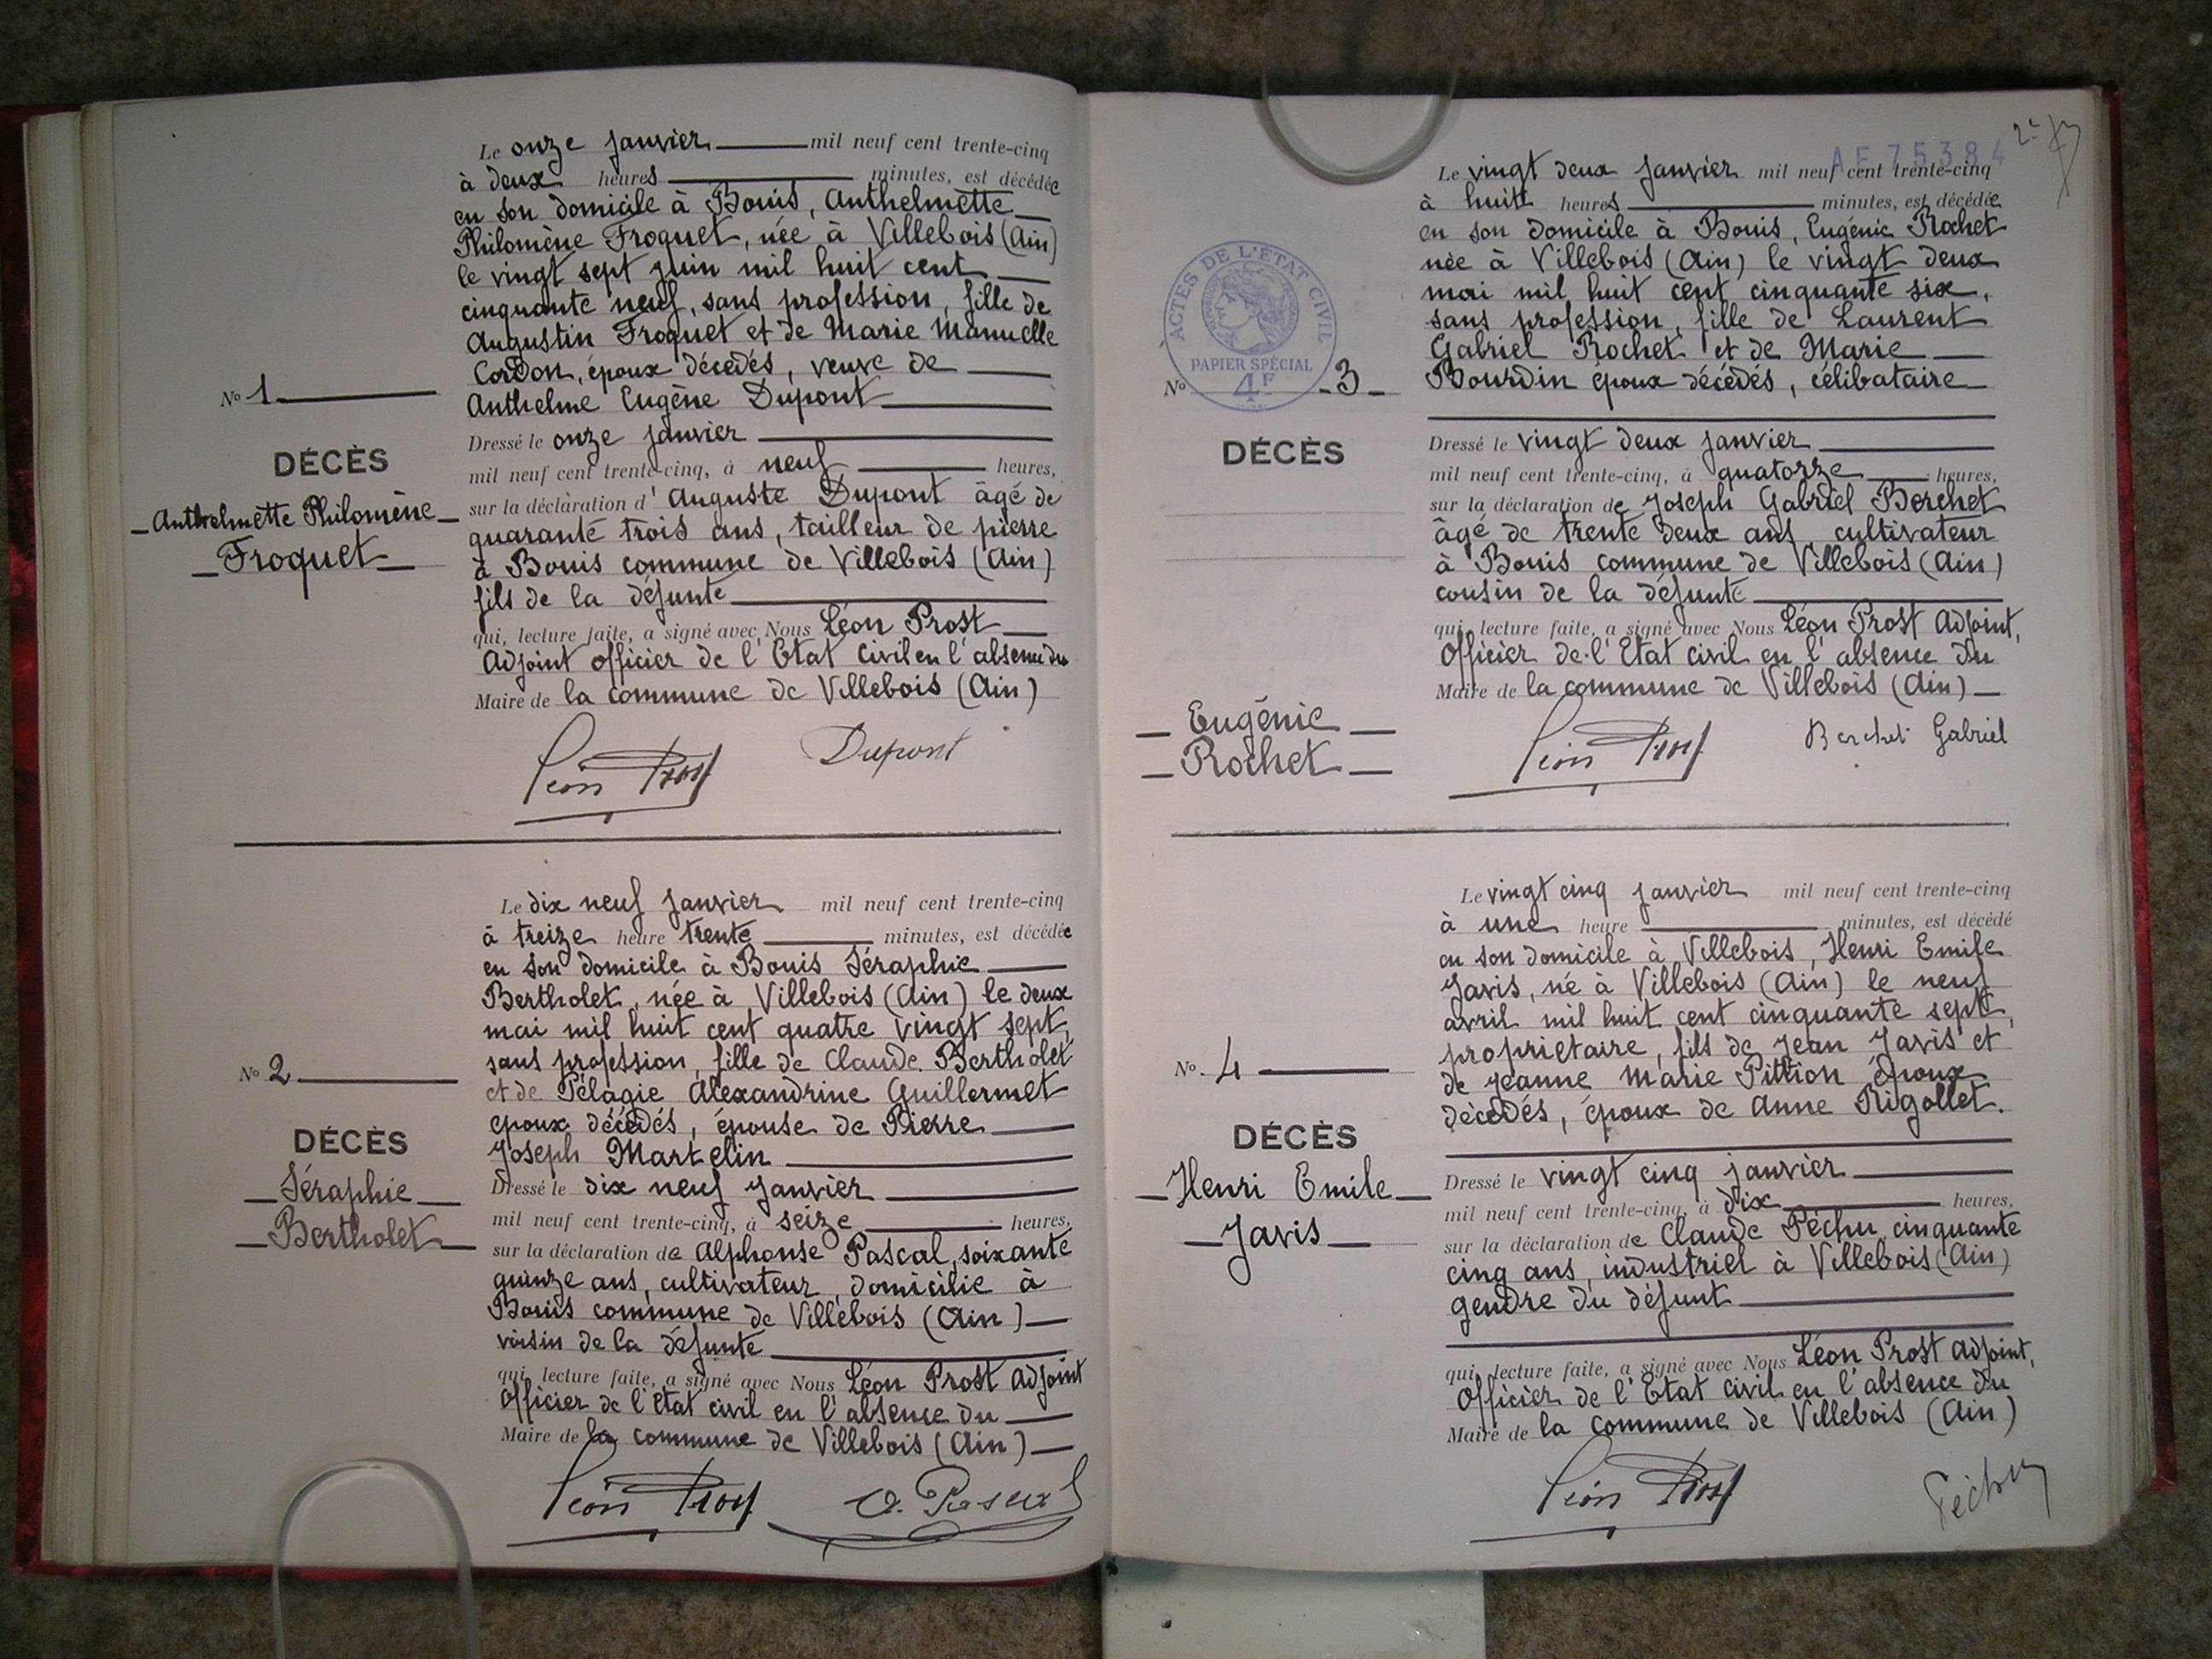 Le onze janvier mil neuf cent trente-cinq
à deux heures minutes, est décédée
en son domicile à Bouis, Anthelmette
Philomène Froquet, née à Villebois (Ain)
le vingt sept juin mil huit cent
cinquante neuf, sans profession, fille de
Augustin Froquet et de Marie Manuelle
Cordon, époux décédés, veuve de
Anthelme Eugène Dupont
Dressé le onze janvier
mil neuf cent trente-cinq, à neuf heures,
sur la déclaration d'Auguste Dupont âgé de
quarante trois ans, tailleur de pierre
à Bouis commune de Villebois (Ain)
fils de la défunte
qui, lecture faite, a signé avec Nous Léon Prost
Adjoint officier de l'Etat Civil en l'absence du
Maire de la commune de Villebois (Ain)
Léon Prost Dupont
N° 1
DÉCÈS
Anthelmette Philomène
Froquet
Le dix neuf janvier mil neuf cent trente-cinq
à treize heure trente minutes, est décédée
en son domicile à Bouis Séraphie
Bertholet, née à Villebois (Ain) le deux
mai mil huit cent quatre vingt sept,
sans profession, fille de Claude Bertholet
et de Pélagie Alexandrine Guillermet
époux décédés, épouse de Pierre
Joseph Martelin
Dressé le dix neuf janvier
mil neuf cent trente-cinq, à seize heures,
sur la déclaration de Alphonse Pascal, soixante
quinze ans, cultivateur, domicilié à
Bouis commune de Villebois (Ain)
voisin de la défunte
qui, lecture faite, a signé avec Nous Léon Prost Adjoint
Officier de l'Etat civil en l'absence du
Maire de la commune de Villebois (Ain)
Léon Prost A. Pascal
N° 2
DÉCÈS
Séraphie
Bertholet
AF 75384
2e
Le vingt deux janvier mil neuf cent trente-cinq
à huit heures minutes, est décédée
en son domicile à Bouis, Eugénie Rochet
née à Villebois (Ain) le vingt deux
mai mil huit cent cinquante six,
sans profession, fille de Laurent
Gabriel Rochet et de Marie
Bourdin époux décédés, célibataire
Dressé le vingt deux janvier
mil neuf cent trente-cinq, à quatorze heures,
sur la déclaration de Joseph Gabriel Berchet
âgé de trente deux ans, cultivateur
à Bouis commune de Villebois (Ain)
cousin de la défunte
qui, lecture faite, a signé avec Nous Léon Prost Adjoint,
Officier de l'Etat civil en l'absence du
Maire de la commune de Villebois (Ain)
Léon Prost Berchet Gabriel
ACTES DE L'ÉTAT CIVIL
PAPIER SPÉCIAL
4F
N° 3
DÉCÈS
Eugénie
Rochet
Le vingt cinq janvier mil neuf cent trente-cinq
à une heure minutes, est décédé
en son domicile à Villebois, Henri Emile
Javis, né à Villebois (Ain) le neuf
avril mil huit cent cinquante sept,
propriétaire, fils de Jean Javis et
de Jeanne Marie Pittion époux
décédés, époux de Anne Rigollet.
Dressé le vingt cinq janvier
mil neuf cent trente-cinq, à dix heures,
sur la déclaration de Claude Péchu, cinquante
cinq ans, industriel à Villebois (Ain)
gendre du défunt
qui, lecture faite, a signé avec Nous Léon Prost Adjoint,
Officier de l'Etat civil en l'absence du
Maire de la commune de Villebois (Ain)
Léon Prost Péchu
N° 4
DÉCÈS
Henri Emile
Javis